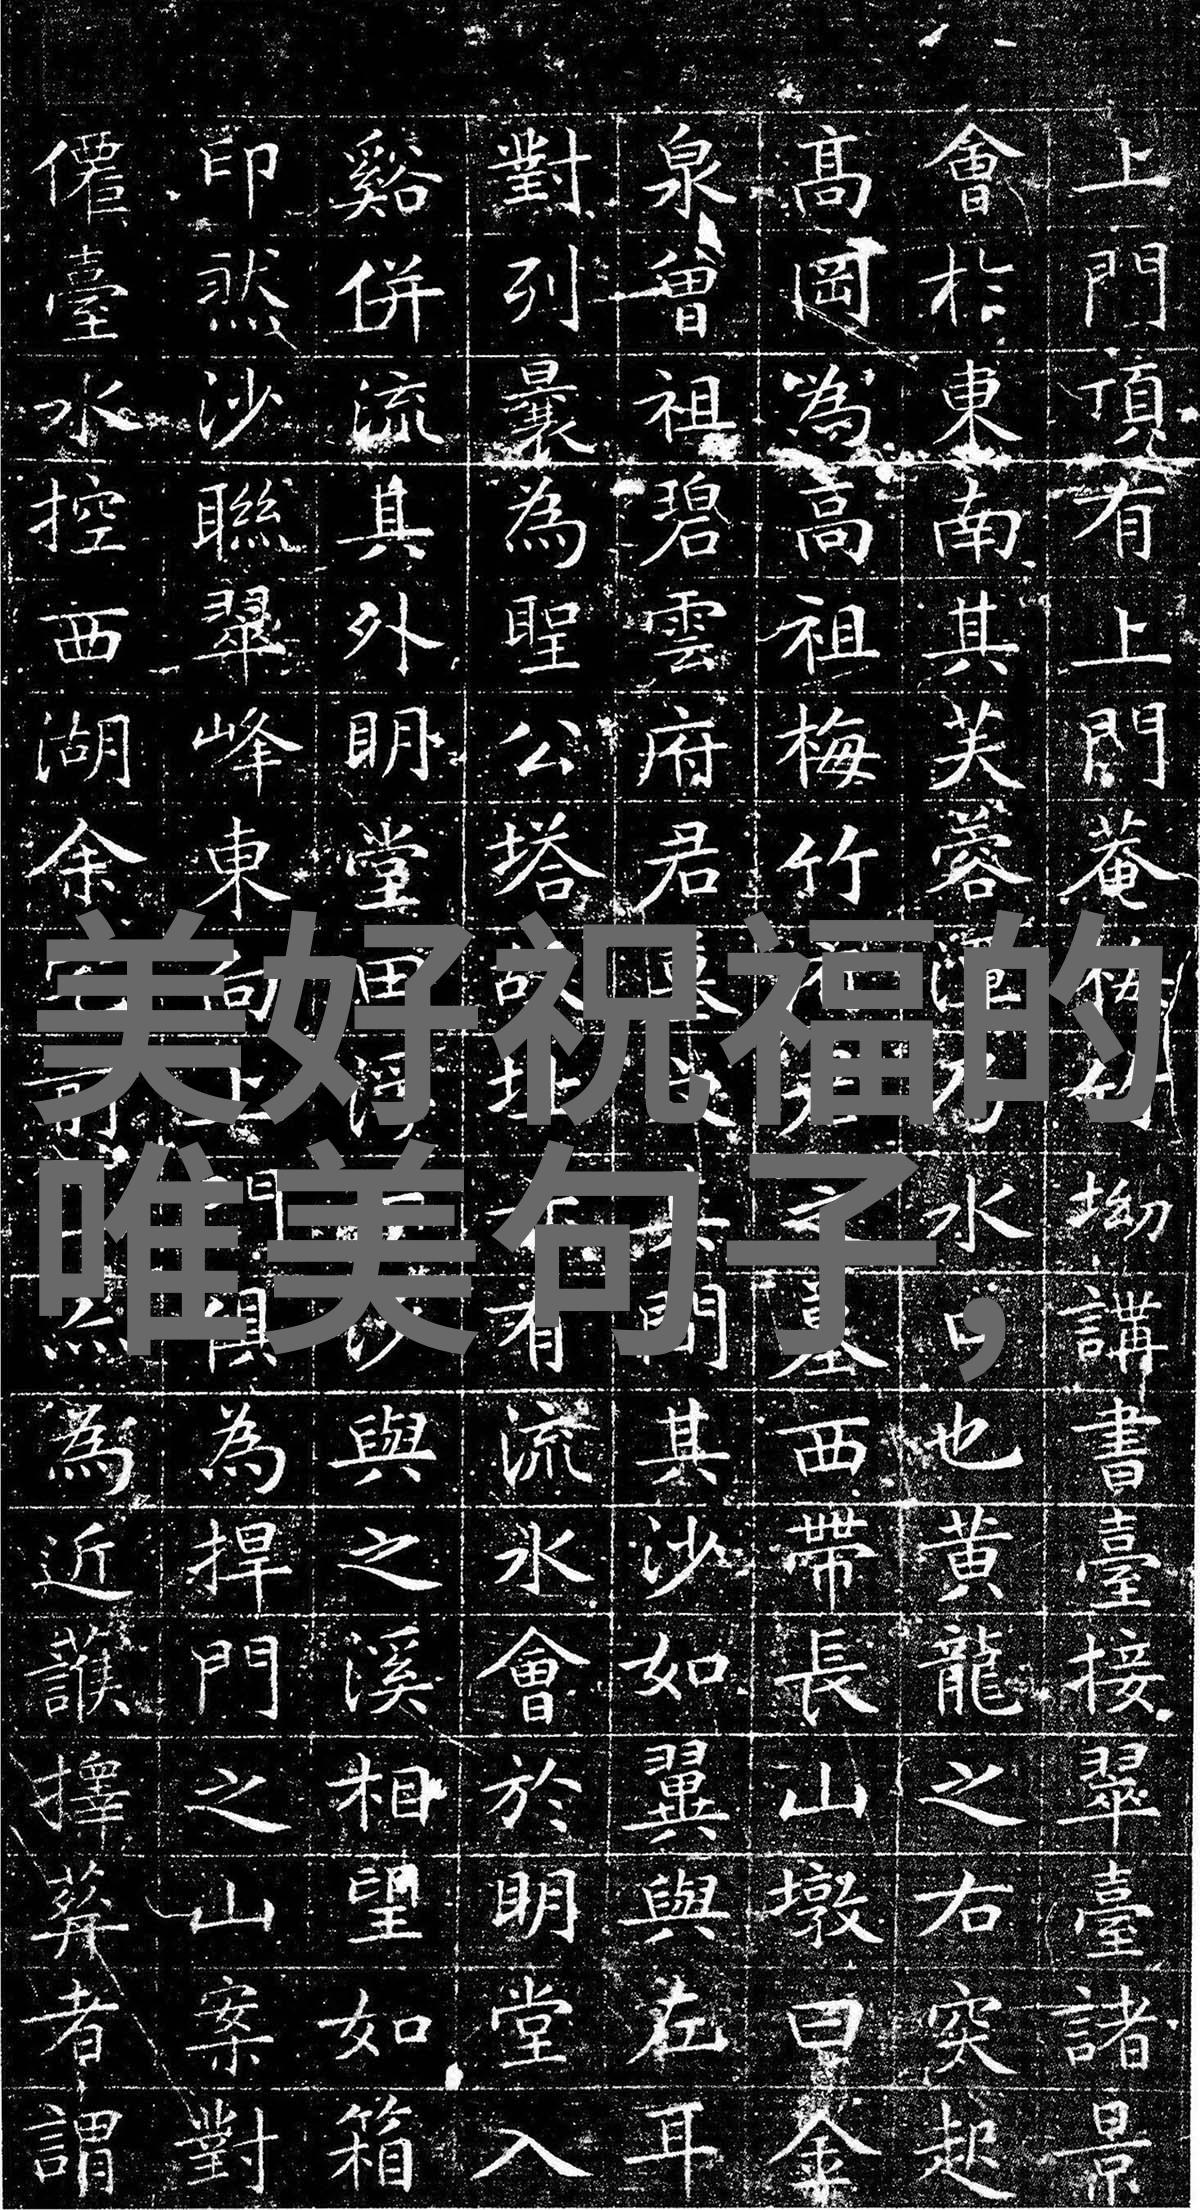 上門頂有上門菴坳講書臺接翠臺諸景
會於東南其芙蓉水口也黃龍之右突起
高岡為高祖梅竹之墓西帶長山墩曰金
泉曾祖碧雲府君墓間其沙如翼與左耳
對列曩為聖公塔故址有流水會於明堂入
谿併流其外明堂田浮沙與之溪相望如箱
印然沙聯翠峰東向上門俱為捍門之山案對
僊臺水控西湖余前為近護擇葬者謂
美好祝福的
唯美句子,